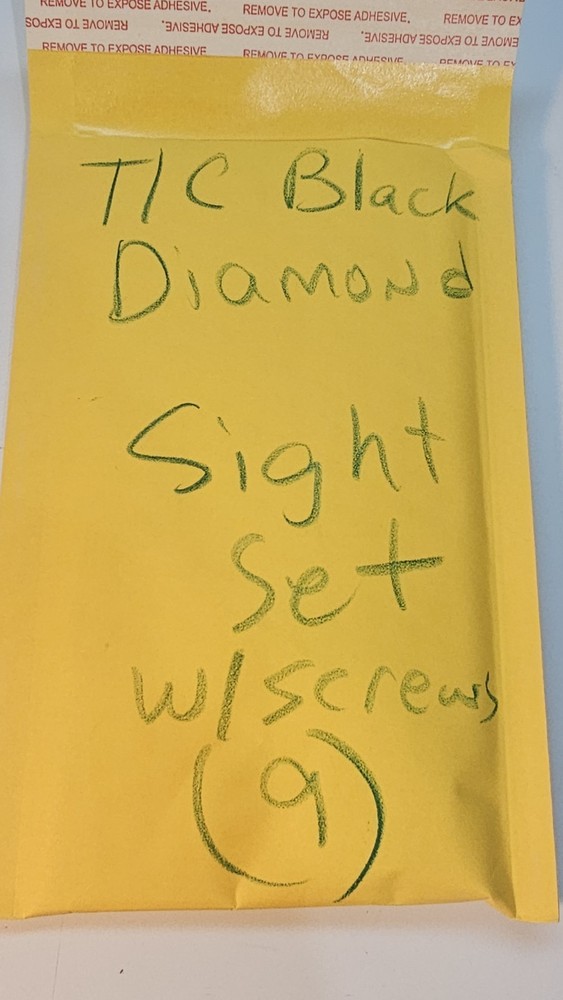 REMOVE TO EXPOSE ADHESIVE. REMOVE TO EXPOSE ADHESIVE. REMOVE TO EX
EMOVE TO EXPOSE ADHESIVE. REMOVE TO EXPOSE ADHESIVE. REMOVE TO EXPOS
REMOVE TO EXPOSE ADHESIVE REMOVE TO EXPOSE ADHESIVE REMOVE TO EX
T/C Black
Diamond
Sight
Set
w/screws
(9)